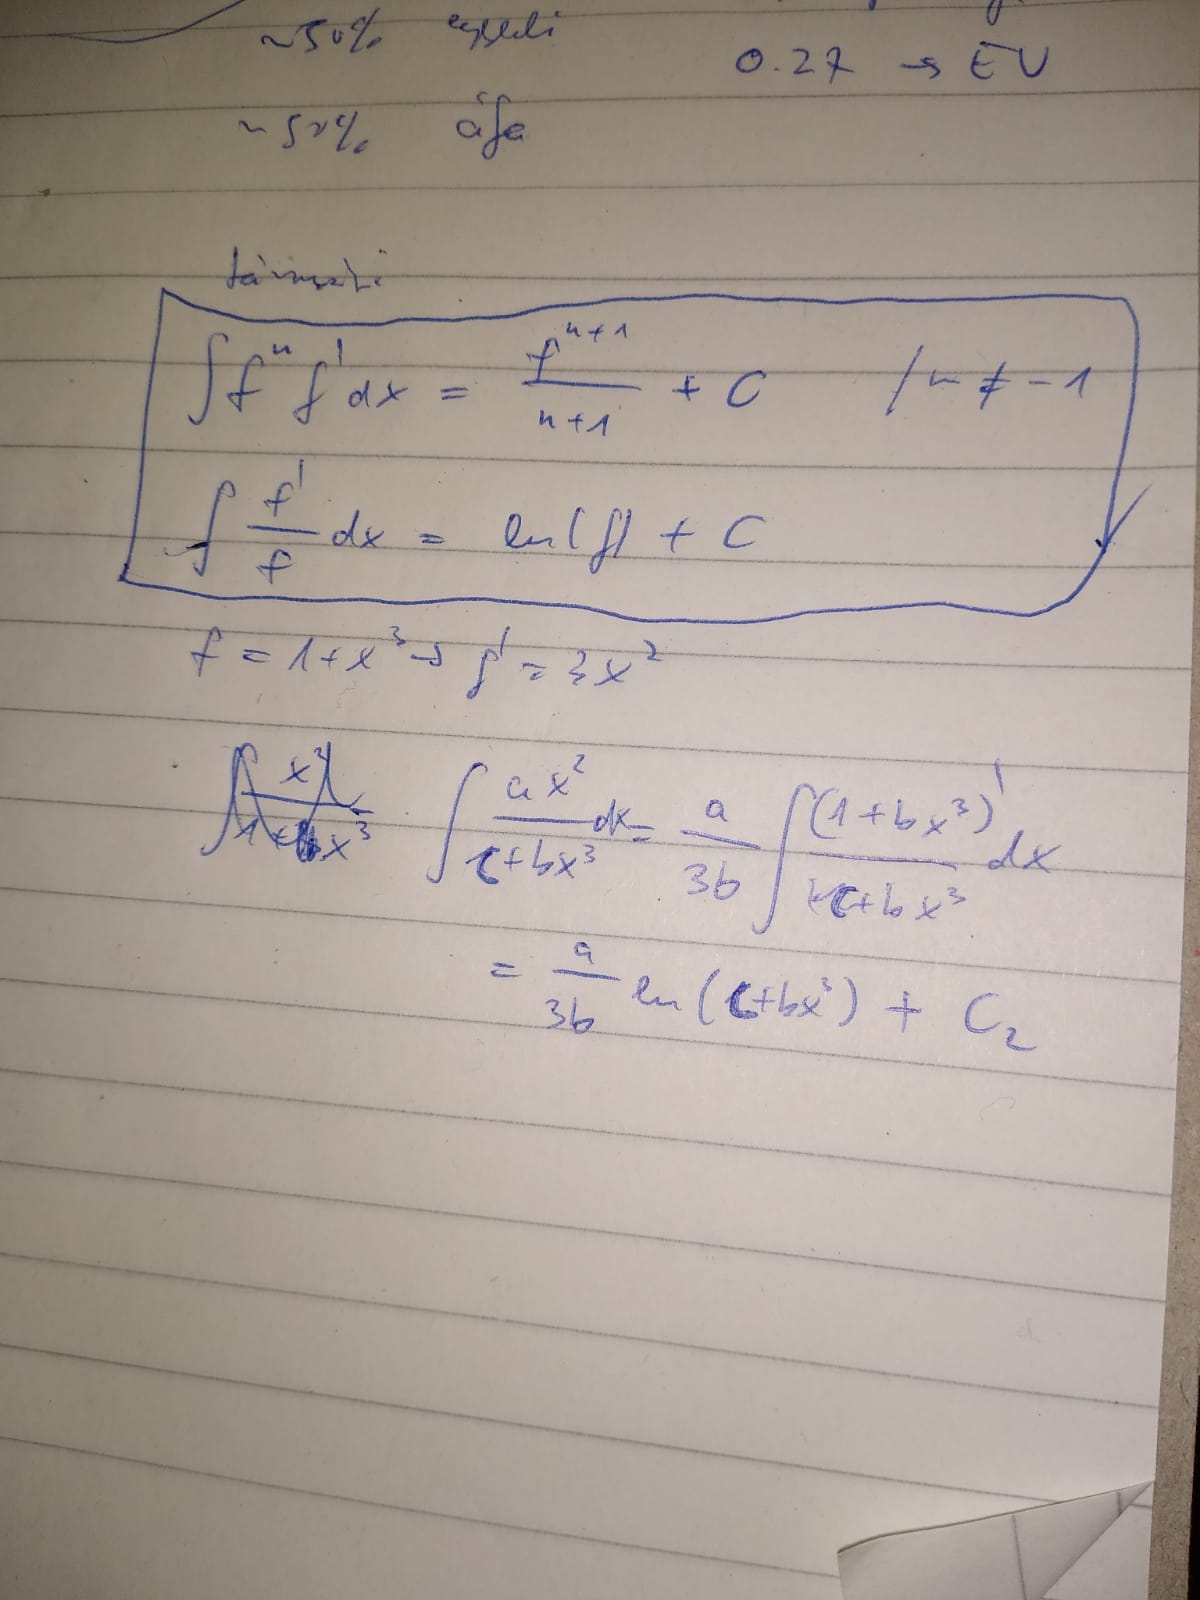 ~50% egyedi
0.27 → EU
~50% áfa
∫fⁿ f' dx = fⁿ⁺¹/(n+1) + C /n ≠ -1
∫ f'/f dx = ln(f) + C
f = 1+x³ → f' = 3x²
∫ ax²/(c+bx³) dx = a/3b ∫ (1+bx³)'/(c+bx³) dx
= a/3b ln(c+bx³) + C₂